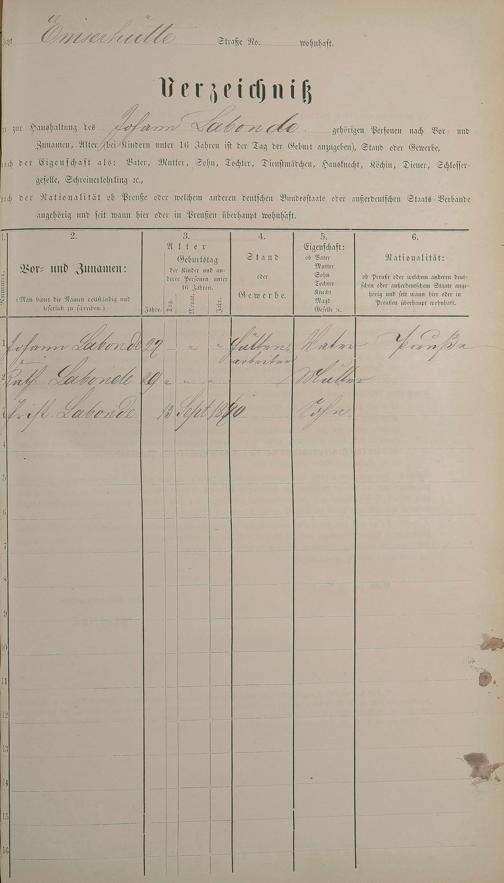 Emserhütte Straße No. wohnhaft.
Verzeichniß
zur Haushaltung des Johann Labonde gehörigen Personen nach Vor- und
Zunamen, Alter (bei Kindern unter 16 Jahren ist der Tag der Geburt anzugeben), Stand oder Gewerbe,
nach der Eigenschaft als: Vater, Mutter, Sohn, Tochter, Dienstmädchen, Hausknecht, Köchin, Diener, Schlosser-
geselle, Schreinerlehrling ꝛc.,
nach der Nationalität ob Preuße oder welchem anderen deutschen Bundesstaate oder außerdeutschen Staats-Verbande
angehörig und seit wann hier oder in Preußen überhaupt wohnhaft.
1. 2. 3. 4. 5. 6.
Nummer.
Vor- und Zunamen:
(Man bittet die Namen vollständig und
leserlich zu schreiben.)
Alter
Geburtstag
der Kinder und an-
derer Personen unter
16 Jahren.
Jahre. Tag. Monat. Jahr.
Stand
oder
Gewerbe.
Eigenschaft:
ob Vater
Mutter
Sohn
Tochter
Knecht
Magd
Geselle ꝛc.
Nationalität:
ob Preuße oder welchem anderen deut-
schen oder außerdeutschen Staate ange-
hörig und seit wann hier oder in
Preußen überhaupt wohnhaft.
1 Johann Labonde 27 " " " Hütten Vater Preuße
arbeiter
2 Kath Labonde 29 " " " Mutter
3 Labonde 13 Sept 1870 Sohn
4
5
6
7
8
9
10
11
12
13
14
15
16